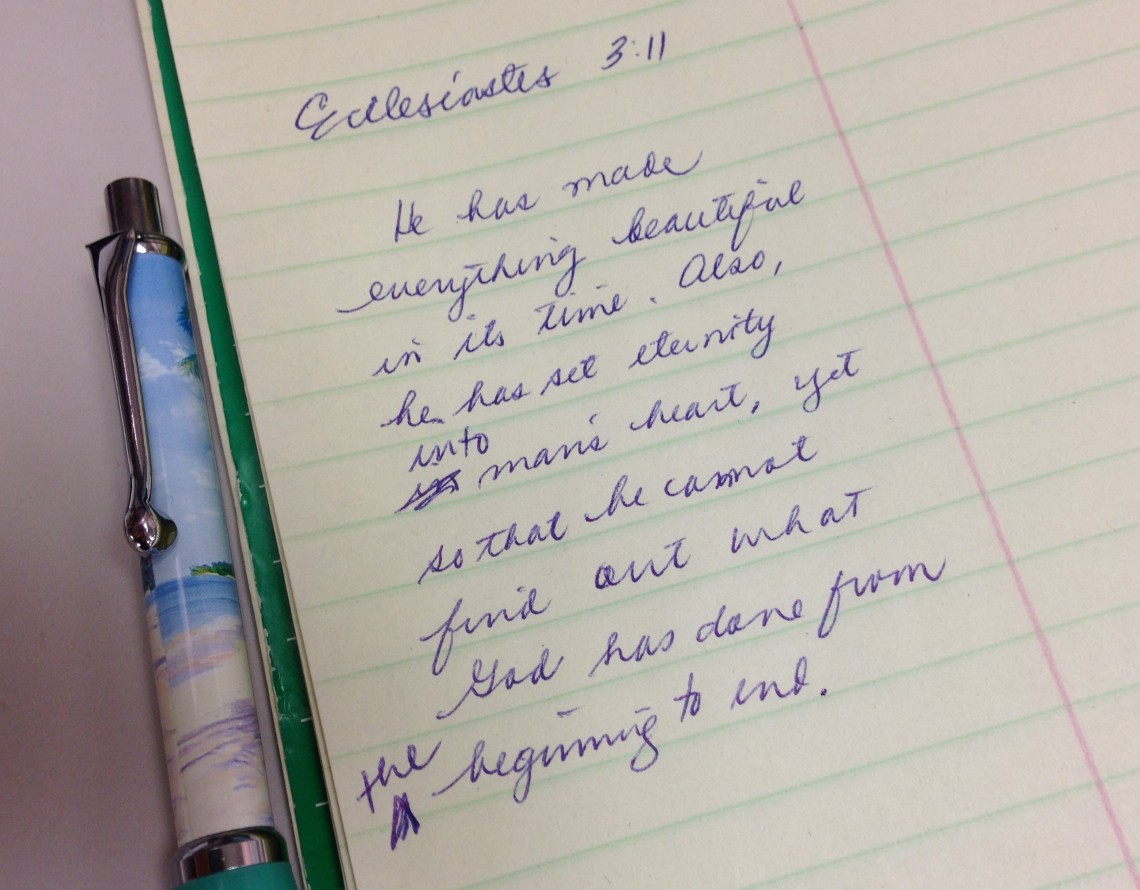 Ecclesiastes 3:11
He has made
everything beautiful
in its time. Also,
he has set eternity
into
man's heart, yet
so that he cannot
find out what
God has done from
the beginning to end.